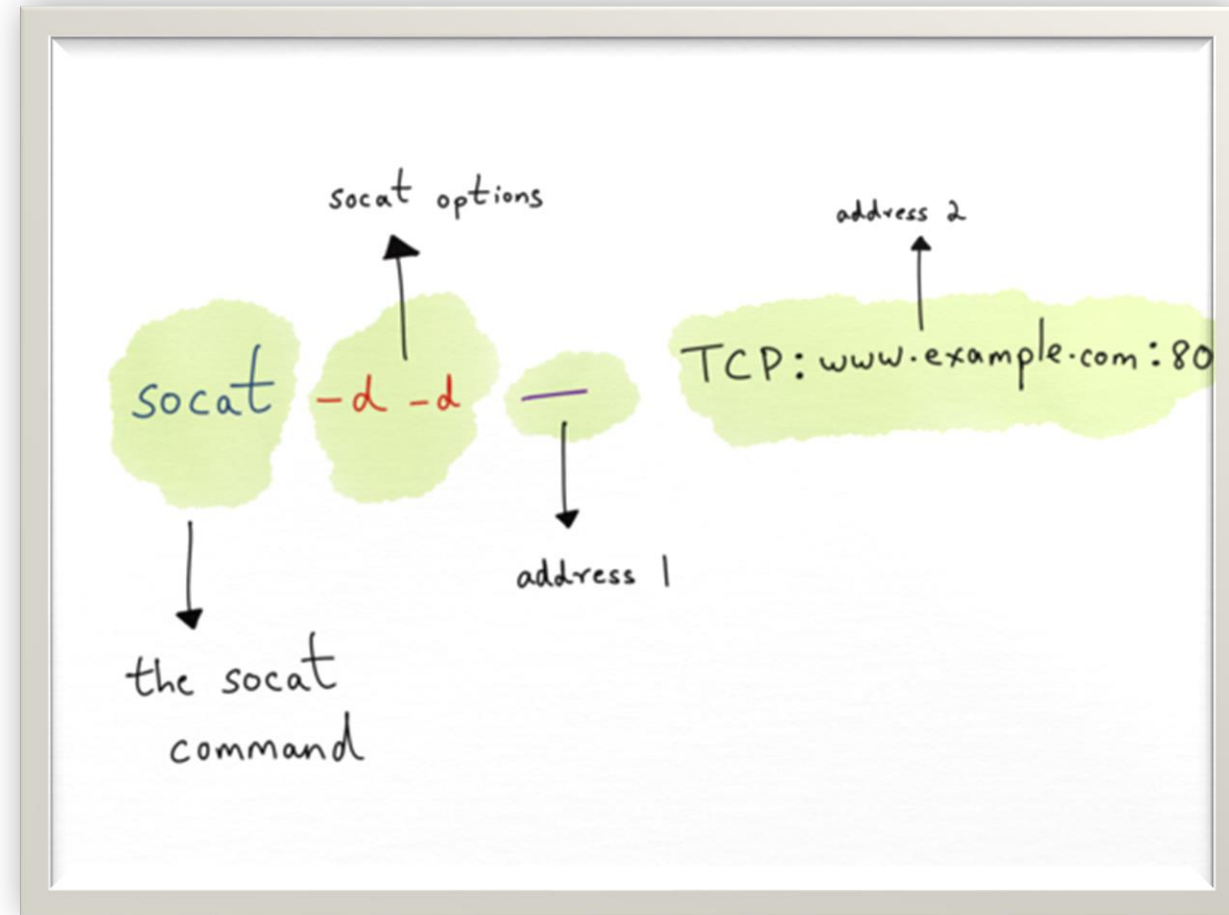 socat options
address 2
socat -d -d — TCP: www.example.com:80
address 1
the socat
command